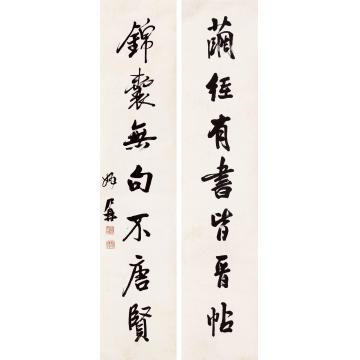 繭經有書皆晉帖
錦囊無句不唐賢